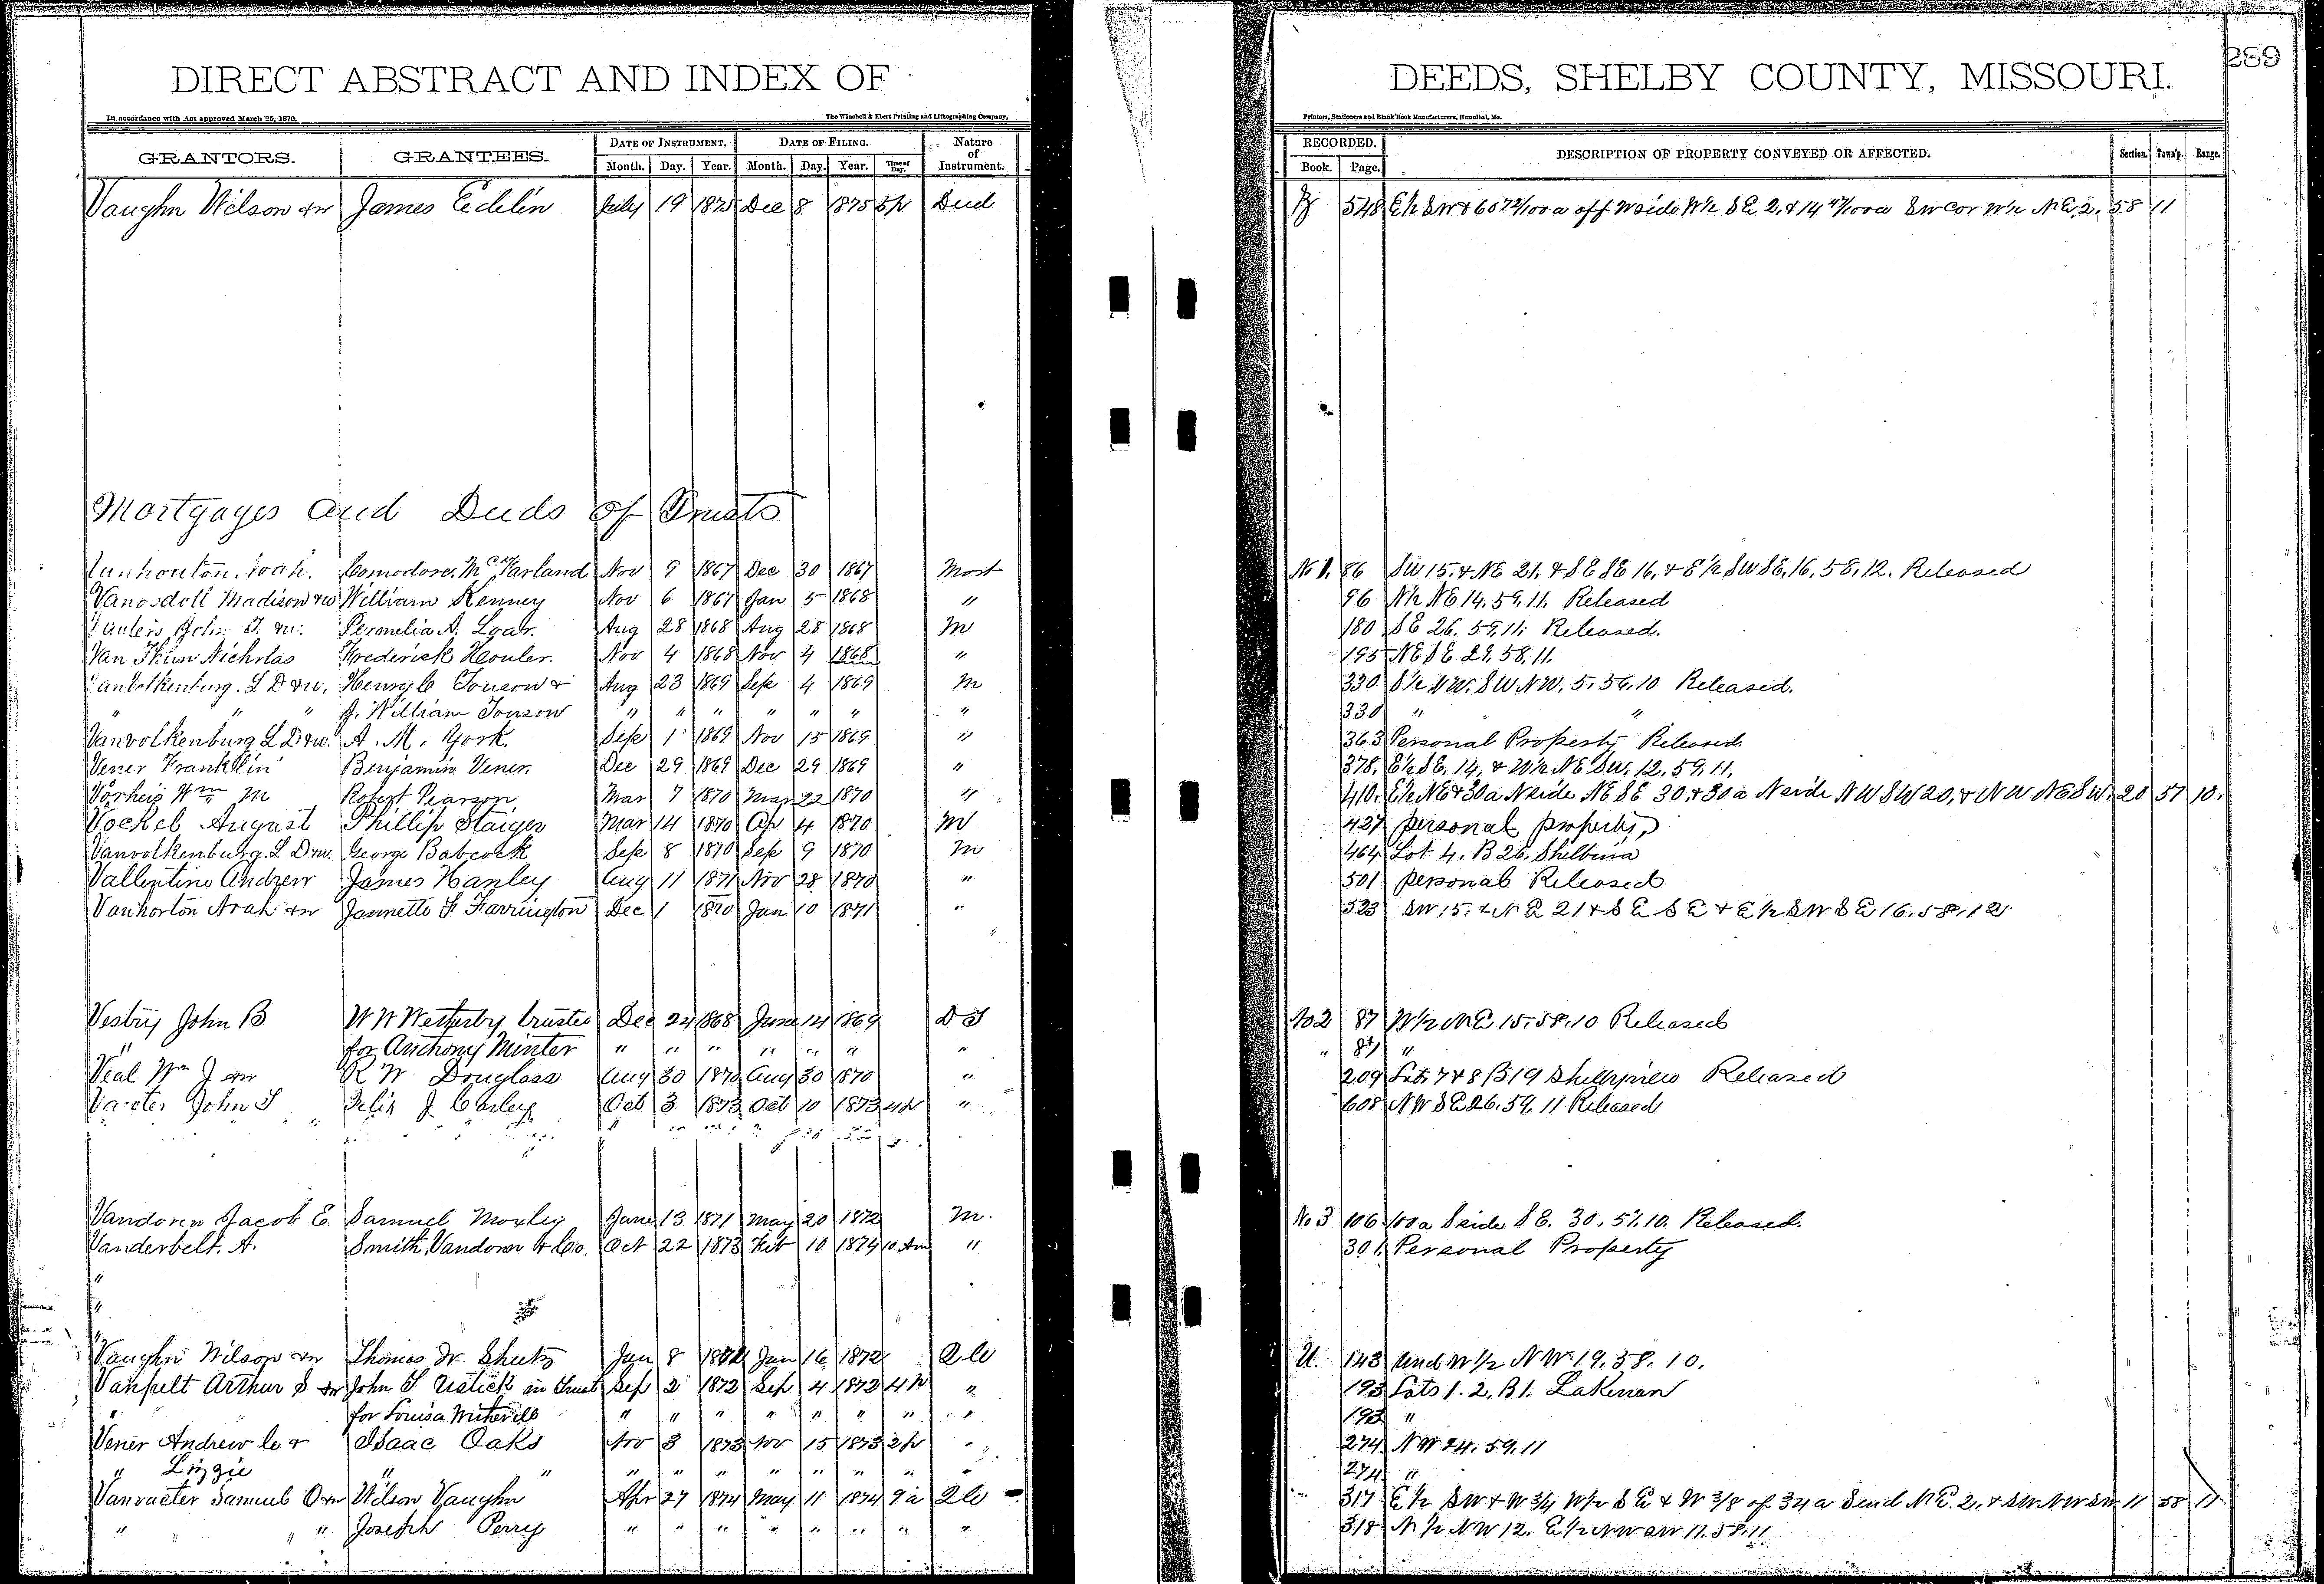 DIRECT ABSTRACT AND INDEX OF DEEDS, SHELBY COUNTY, MISSOURI. 289
In accordance with Act approved March 25, 1870. The Winchell & Ebert Printing and Lithographing Company, Printers, Stationers and Blank Book Manufacturers, Hannibal, Mo.
GRANTORS. GRANTEES. DATE OF INSTRUMENT. DATE OF FILING. Nature of Instrument. RECORDED. DESCRIPTION OF PROPERTY CONVEYED OR AFFECTED. Section. Town'p. Range.
Month. Day. Year. Month. Day. Year. Time of Day. Book. Page.
Vaughn Wilson &w James Edelin July 19 1875 Dec 8 1875 5p Deed 548 E½ SW & 60 72/100 a off W side W½ SE 2, & 14 47/100 a SW cor W½ NE, 2. 58 11
Mortgages and Deeds of Trusts
Vanhouton, Noah. Comodore. McFarland Nov 9 1867 Dec 30 1867 Mort No 1. 86 SW 15. & NE 21. & SE SE 16, & E½ SW SE, 16, 58, 12. Released
Vanosdoll Madison &w William Kenney Nov 6 1867 Jan 5 1868 " 96 N½ NE 14. 59. 11. Released
John T. &w. Permelia A. Loar. Aug 28 1868 Aug 28 1868 M 180 SE 26. 59. 11. Released.
Van Nicholas Frederick Nov 4 1868 Nov 4 1868 " 195 NE SE 29. 58. 11.
Vanvolkenburg. L D &w. Henry C Tonsow & Aug 23 1869 Sep 4 1869 M 330 S½ NW. SW NW. 5. 56. 10 Released.
" " " J. William Tonsow " " " " " " " 330 " "
Vanvolkenburg L D &w. A. M. York. Sep 1 1869 Nov 15 1869 " 363 Personal Property Released.
Vener Franklin Benjamin Vener. Dec 29 1869 Dec 29 1869 " 378. E½ SE. 14, & W½ NE SW. 12. 59. 11.
Vorheis Wm M Robert Pearson. Mar 7 1870 Mar 22 1870 " 410. E½ NE & 30 a N side NE SE 30, & 30 a N side NW SW 20, & NW NE SW. 20 57 10.
Vockel August Phillip Staiger Mar 14 1870 Ap 4 1870 M 427 personal property,
Vanvolkenburg. L D &w. George Babcock Sep 8 1870 Sep 9 1870 M 464 Lot 4. B 26. Shelbina
Vallentine Andrew James Hanley Aug 11 1871 Nov 28 1870 " 501 personal Released
Vanhorton Noah &w Jannette F Farrington Dec 1 1870 Jan 10 1871 " 523 SW 15. & NE 21 & SE SE & E½ SW SE 16. 58. 12
Vestry John B W W Wetherby trustee Dec 24 1868 June 14 1869 D T No 2 87 W½ NE 15. 58. 10 Released
" for Anthony Minter " " " " " " " " 87 "
Veal Wm J &w R W Douglass Aug 30 1870 Aug 30 1870 " 209 Lots 7 & 8 B 19 Released
John S Felix J Corley Oct 3 1873 Oct 10 1873 4p " 608 NW SE 26. 59. 11 Released
Vandoren Jacob E. Samuel Moxley June 13 1871 May 20 1872 M. No 3 106 100 a S side SE. 30. 57. 10. Released.
Vanderbelt. A. Smith, Vandoren & Co. Oct 22 1873 Feb 10 1874 10 Am " 301. Personal Property
Vaughn Wilson &w Thomas W. Sheetz Jan 8 1872 Jan 16 1872 Q C U. 143 Und W½ NW 19. 58. 10.
Vanpelt Arthur S &w John S Ustick in trust Sep 2 1872 Sep 4 1872 4p " 193 Lots 1. 2. B 1. Lakenan
" for Louisa " " " " " " " " 193 "
Vener Andrew C & Isaac Oaks Nov 3 1873 Nov 15 1873 2p " 274 NW 24. 59. 11
" Lizzie " " " " " " " " " " 274. "
Samuel O &w Wilson Vaughn Apr 27 1874 May 11 1874 9a Q C 317 E½ SW & W ¾ W½ SE & W ⅜ of 34 a S end NE. 2. & SW NW SW 11 58 11
" " Joseph Perry " " " " " " " " 318 N½ NW 12. E½ NW SW 11. 58. 11